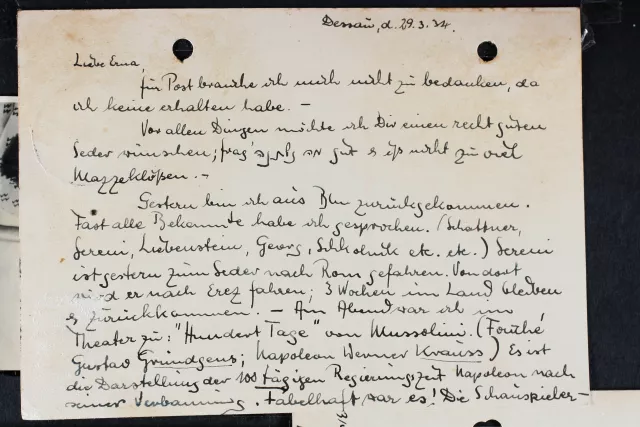 Dessau, d. 29.3.34.
Liebe Erna,
für Post brauche ich mich nicht zu bedanken, da
ich keine erhalten habe. —
Vor allen Dingen möchte ich Dir einen recht guten
Seder wünschen; frag' מה נשתנה gut & iß nicht zu viel
Mazzeklößen. —
Gestern bin ich aus Bln zurückgekommen.
Fast alle Bekannte habe ich gesprochen. (Schattner,
Sereni, Liebenstein, Georg, Schkolnik etc. etc.) Sereni
ist gestern zum Seder nach Rom gefahren. Von dort
wird er nach Erez fahren; 3 Wochen im Land bleiben
& zurückkommen. — Am Abend war ich im
Theater zu: "Hundert Tage" von Mussolini. (Fouché,
Gustav Gründgens; Napoleon Werner Krauss) Es ist
die Darstellung der 100 tägigen Regierungszeit Napoleon nach
seiner Verbannung. Fabelhaft war es! Die Schauspieler-